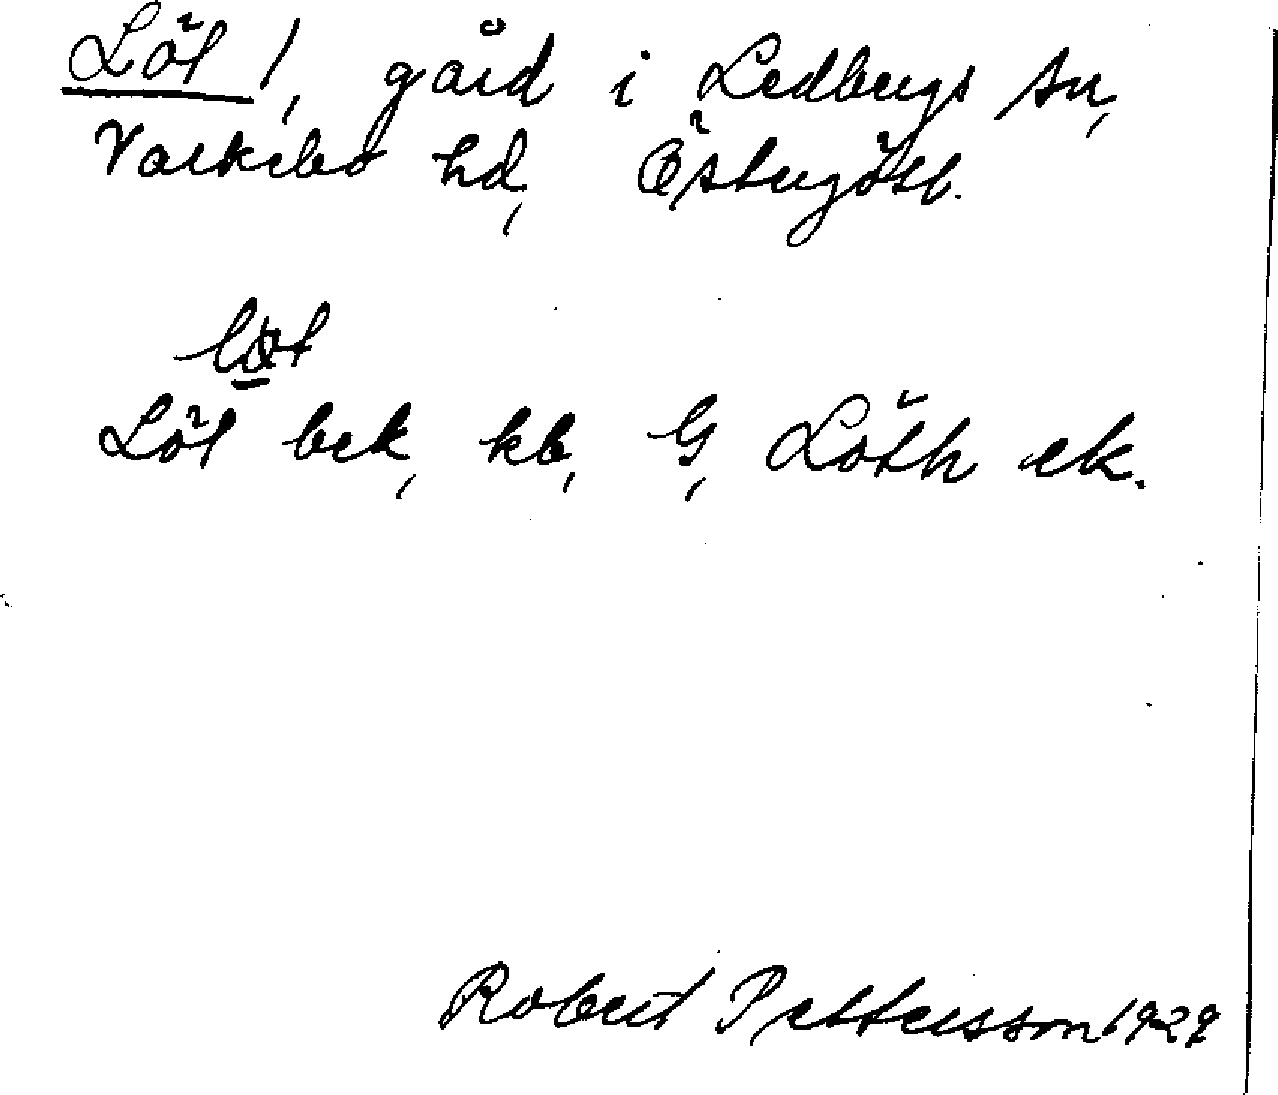 Löt 1, gård i Ledbergs sn,
Valkebo hd, Östergötl.
löt
Löt bek, kb, G, Löth ek.
Robert Pettersson 1929